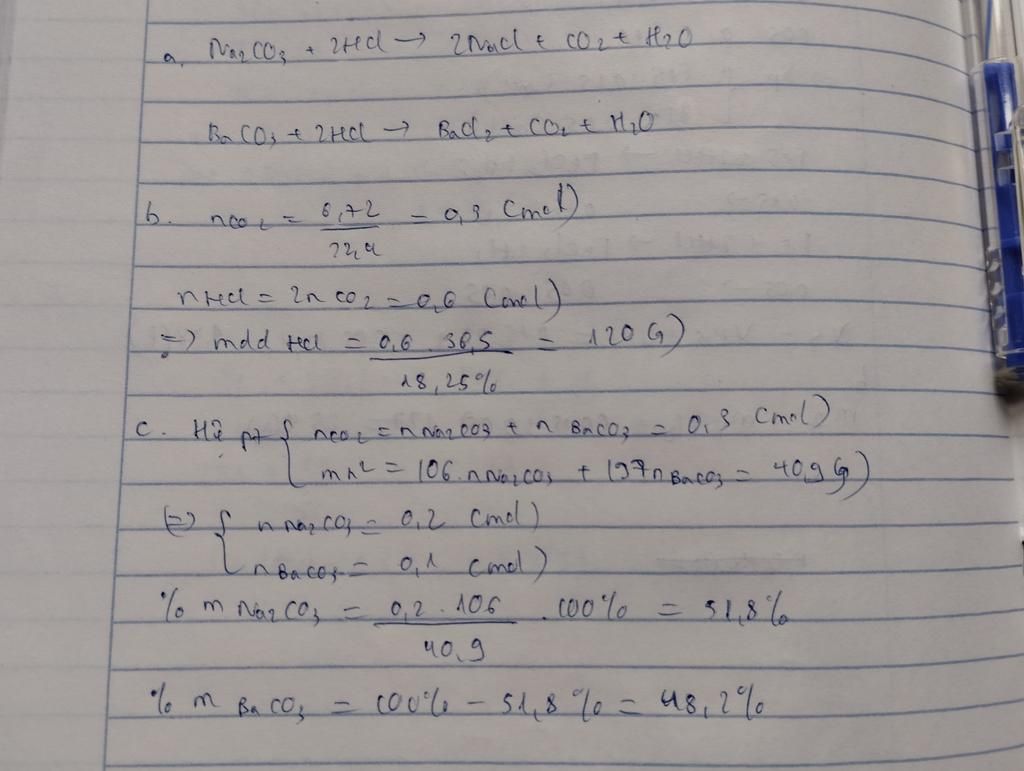 a, Na2CO3 + 2HCl → 2NaCl + CO2 + H2O
BaCO3 + 2HCl → BaCl2 + CO2 + H2O
b. nCO2 = 6,72 / 22,4 = 0,3 (mol)
nHCl = 2nCO2 = 0,6 (mol)
=> mdd HCl = 0,6 . 36,5 / 18,25% = 120 (g)
c. Hệ pt { nCO2 = nNa2CO3 + nBaCO3 = 0,3 (mol)
mh2 = 106.nNa2CO3 + 197nBaCO3 = 40,9 (g)
(=) { nNa2CO3 = 0,2 (mol)
nBaCO3 = 0,1 (mol)
% m Na2CO3 = 0,2 . 106 / 40,9 . 100% = 51,8%
% m BaCO3 = 100% - 51,8% = 48,2%